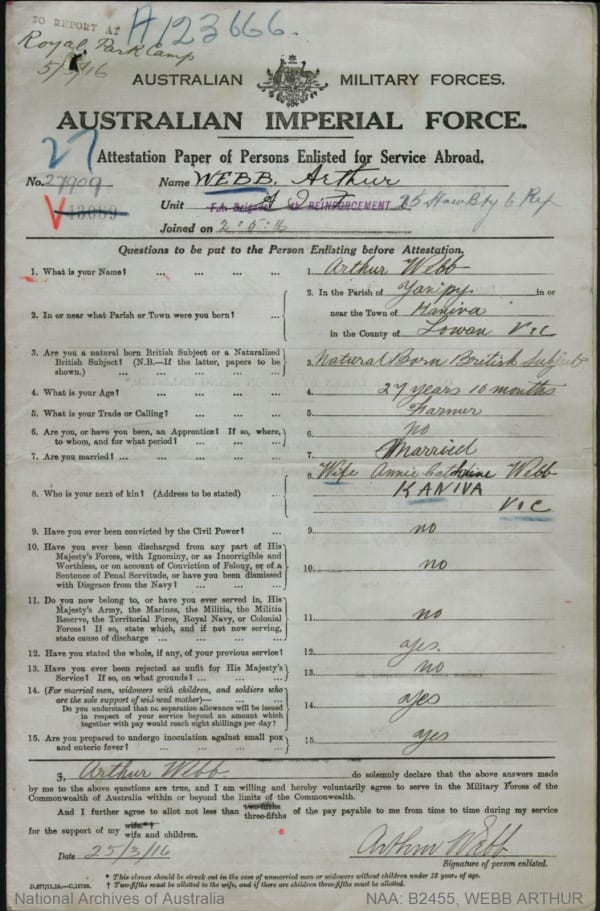 TO REPORT AT
A123666.
Royal Park Camp
5/5/16
AUSTRALIAN MILITARY FORCES.
AUSTRALIAN IMPERIAL FORCE.
27
Attestation Paper of Persons Enlisted for Service Abroad.
No. 27909 Name WEBB. Arthur
V 43089 Unit F.A. Brigade REINFORCEMENT How Bty 6 Ref
Joined on 2.5.16
Questions to be put to the Person Enlisting before Attestation.
1. What is your Name? ... ... ... ... 1. Arthur Webb
2. In or near what Parish or Town were you born? ... 2. In the Parish of Yanipy in or
near the Town of Kaniva
in the County of Lowan Vic
3. Are you a natural born British Subject or a Naturalized
British Subject? (N.B.—If the latter, papers to be
shown.) ... ... ... ... 3. Natural Born British Subject
4. What is your Age? ... ... ... ... 4. 27 years 10 months
5. What is your Trade or Calling? ... ... ... 5. Farmer
6. Are you, or have you been, an Apprentice? If so, where,
to whom, and for what period? ... ... ... 6. no
7. Are you married? ... ... ... ... ... 7. Married
8. Who is your next of kin? (Address to be stated) ... 8. Wife Annie Catherine Webb
KANIVA
Vic
9. Have you ever been convicted by the Civil Power? ... 9. no
10. Have you ever been discharged from any part of His
Majesty's Forces, with Ignominy, or as Incorrigible and
Worthless, or on account of Conviction of Felony, or of a
Sentence of Penal Servitude, or have you been dismissed
with Disgrace from the Navy? ... ... ... 10. no
11. Do you now belong to, or have you ever served in, His
Majesty's Army, the Marines, the Militia, the Militia
Reserve, the Territorial Force, Royal Navy, or Colonial
Forces? If so, state which, and if not now serving,
state cause of discharge ... ... ... ... 11. no
12. Have you stated the whole, if any, of your previous service? 12. yes.
13. Have you ever been rejected as unfit for His Majesty's
Service? If so, on what grounds? ... ... ... 13. no
14. (For married men, widowers with children, and soldiers who
are the sole support of widowed mother)—
Do you understand that no separation allowance will be issued
in respect of your service beyond an amount which
together with pay would reach eight shillings per day? 14. yes
15. Are you prepared to undergo inoculation against small pox
and enteric fever? ... ... ... ... 15. yes
I, Arthur Webb do solemnly declare that the above answers made
by me to the above questions are true, and I am willing and hereby voluntarily agree to serve in the Military Forces of the
Commonwealth of Australia within or beyond the limits of the Commonwealth.
And I further agree to allot not less than two-fifths three-fifths of the pay payable to me from time to time during my service
for the support of my wife*† wife and children.
Date 25/3/16 Arthur Webb
Signature of person enlisted.
* This clause should be struck out in the case of unmarried men or widowers without children under 18 years of age.
† Two-fifths must be allotted to the wife, and if there are children three-fifths must be allotted.
National Archives of Australia NAA: B2455, WEBB ARTHUR